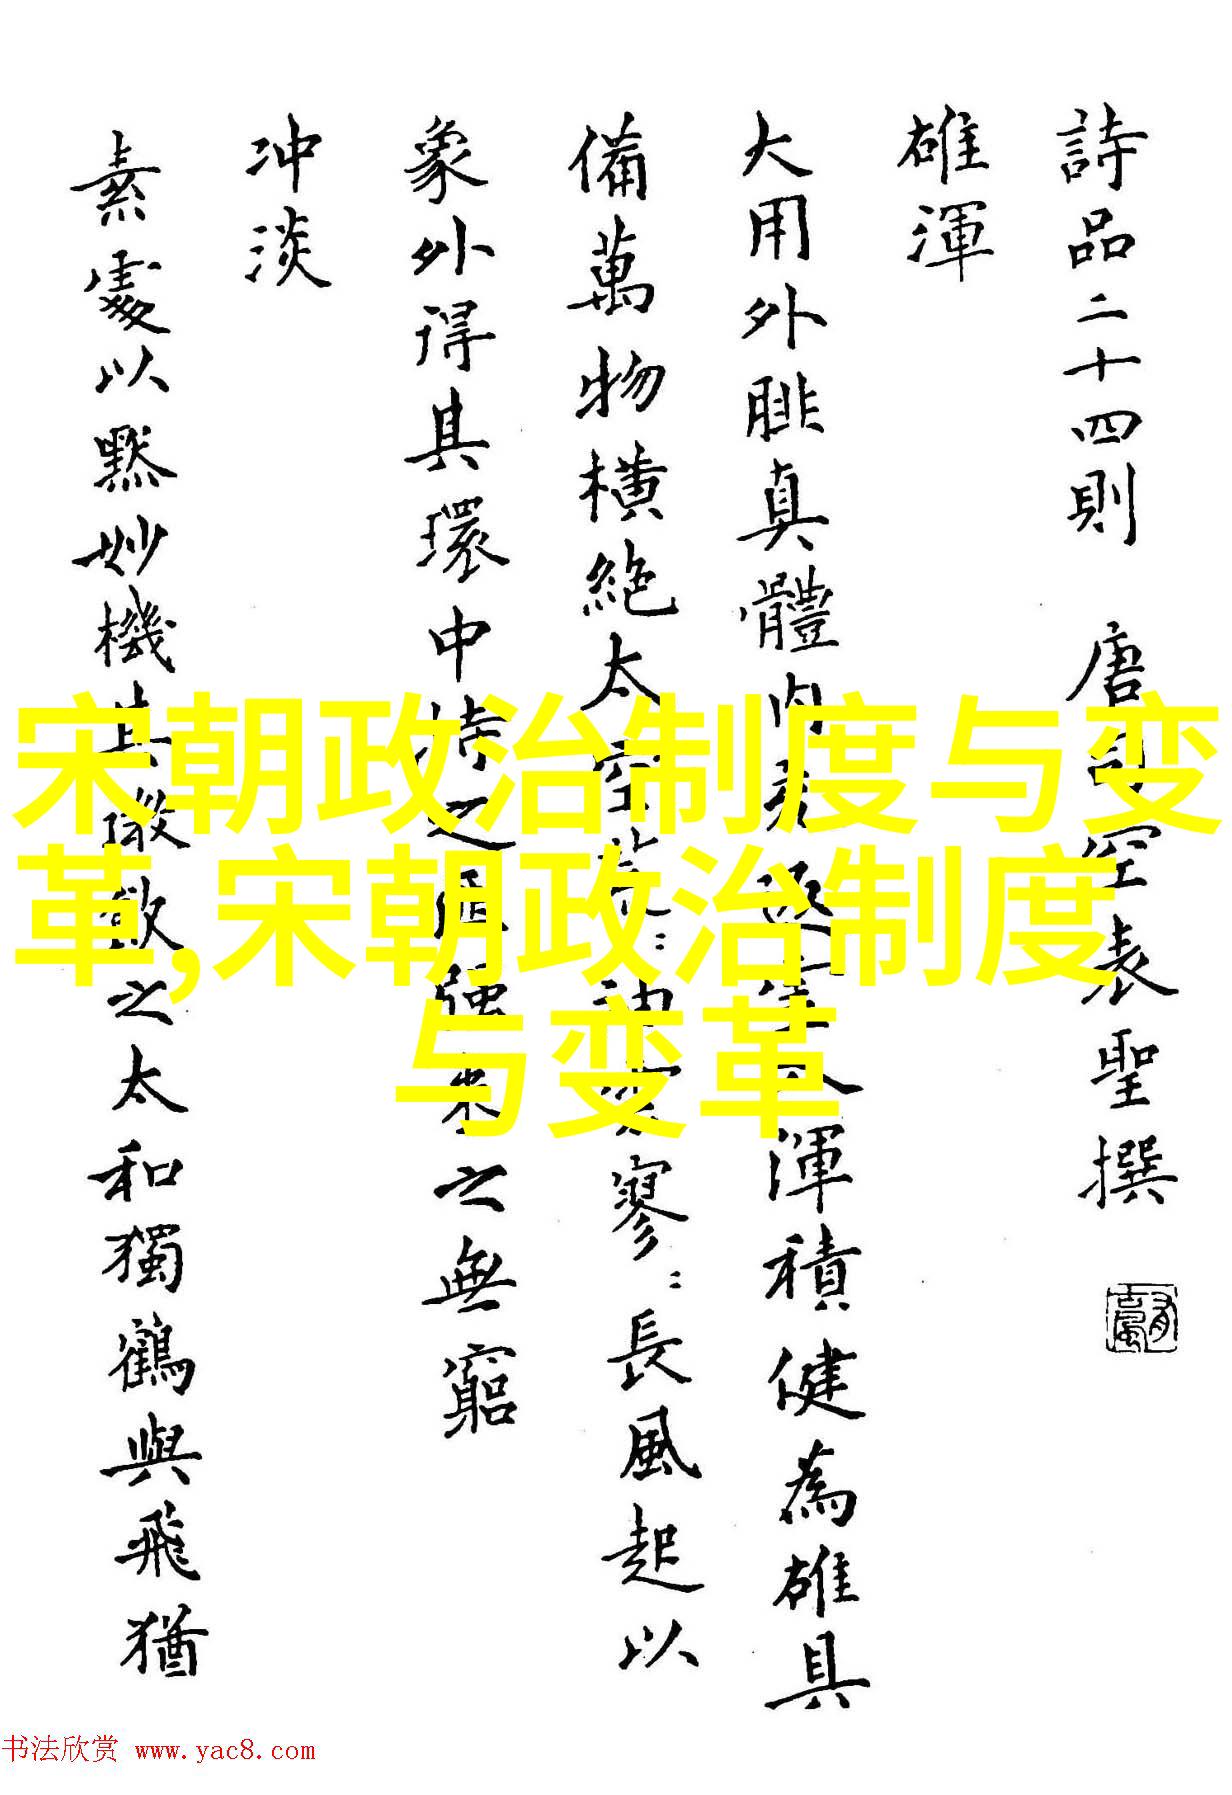 詩品二十四則 唐司空表聖撰
雄渾
大用外腓真體內充返虛入渾積健為雄具
備萬物橫絕太空荒〻油雲寥〻長風起以
象外得其環中持之匪強来之無窮
冲淡
素處以默妙機其微飲之太和獨鶴與飛猶
宋朝政治制度与变
革,宋朝政治制度
与变革
书法欣赏 www.yac8.com